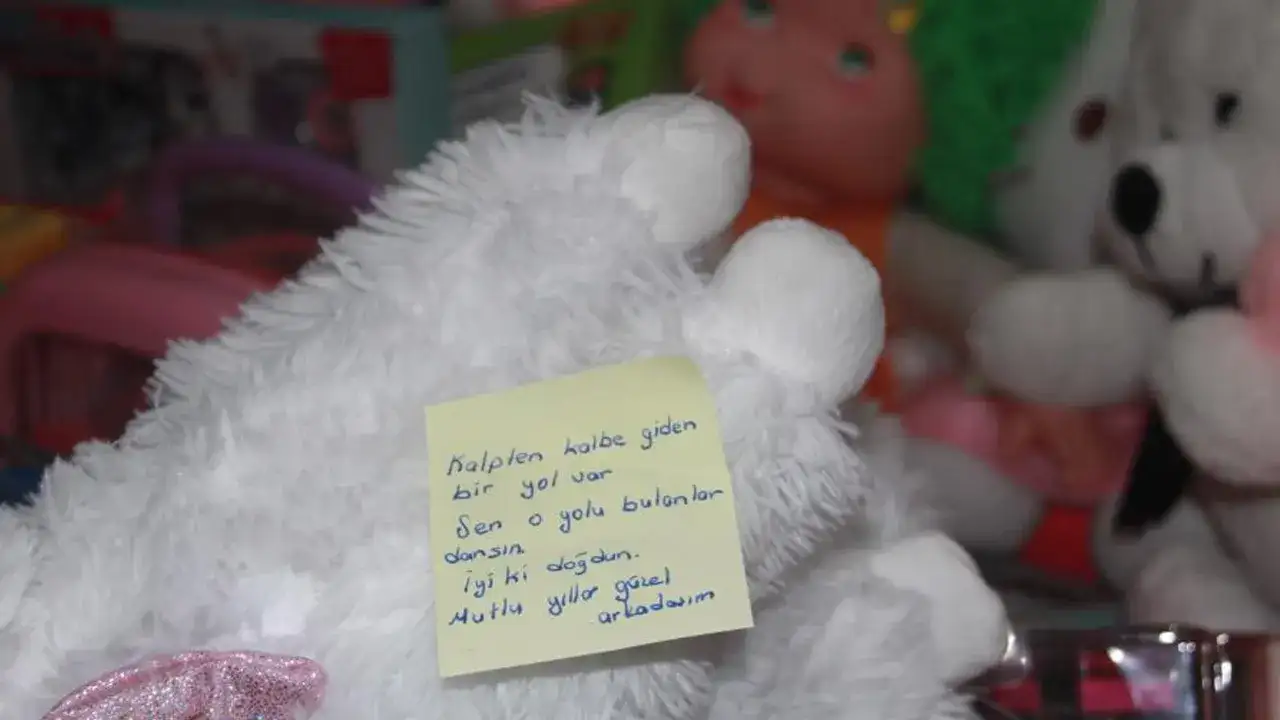 Kalpten kalbe giden
bir yol var
Sen o yolu bulanlar
dansın.
iyi ki doğdun.
Mutlu yıllar güzel
arkadaşım